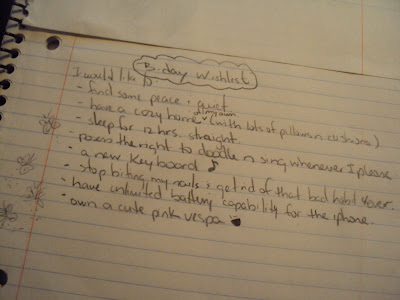 B-day Wishlist
I would like to:
- find some peace & quiet
- have a cozy home of my own (with lots of pillows n cushions)
- sleep for 12 hrs. straight.
- posess the right to doodle n sing whenever I please
- a new keyboard ♪
- stop biting my nails & get rid of that bad habit 4ever.
- have unlimited battery capability for the iphone.
- own a cute pink vespa